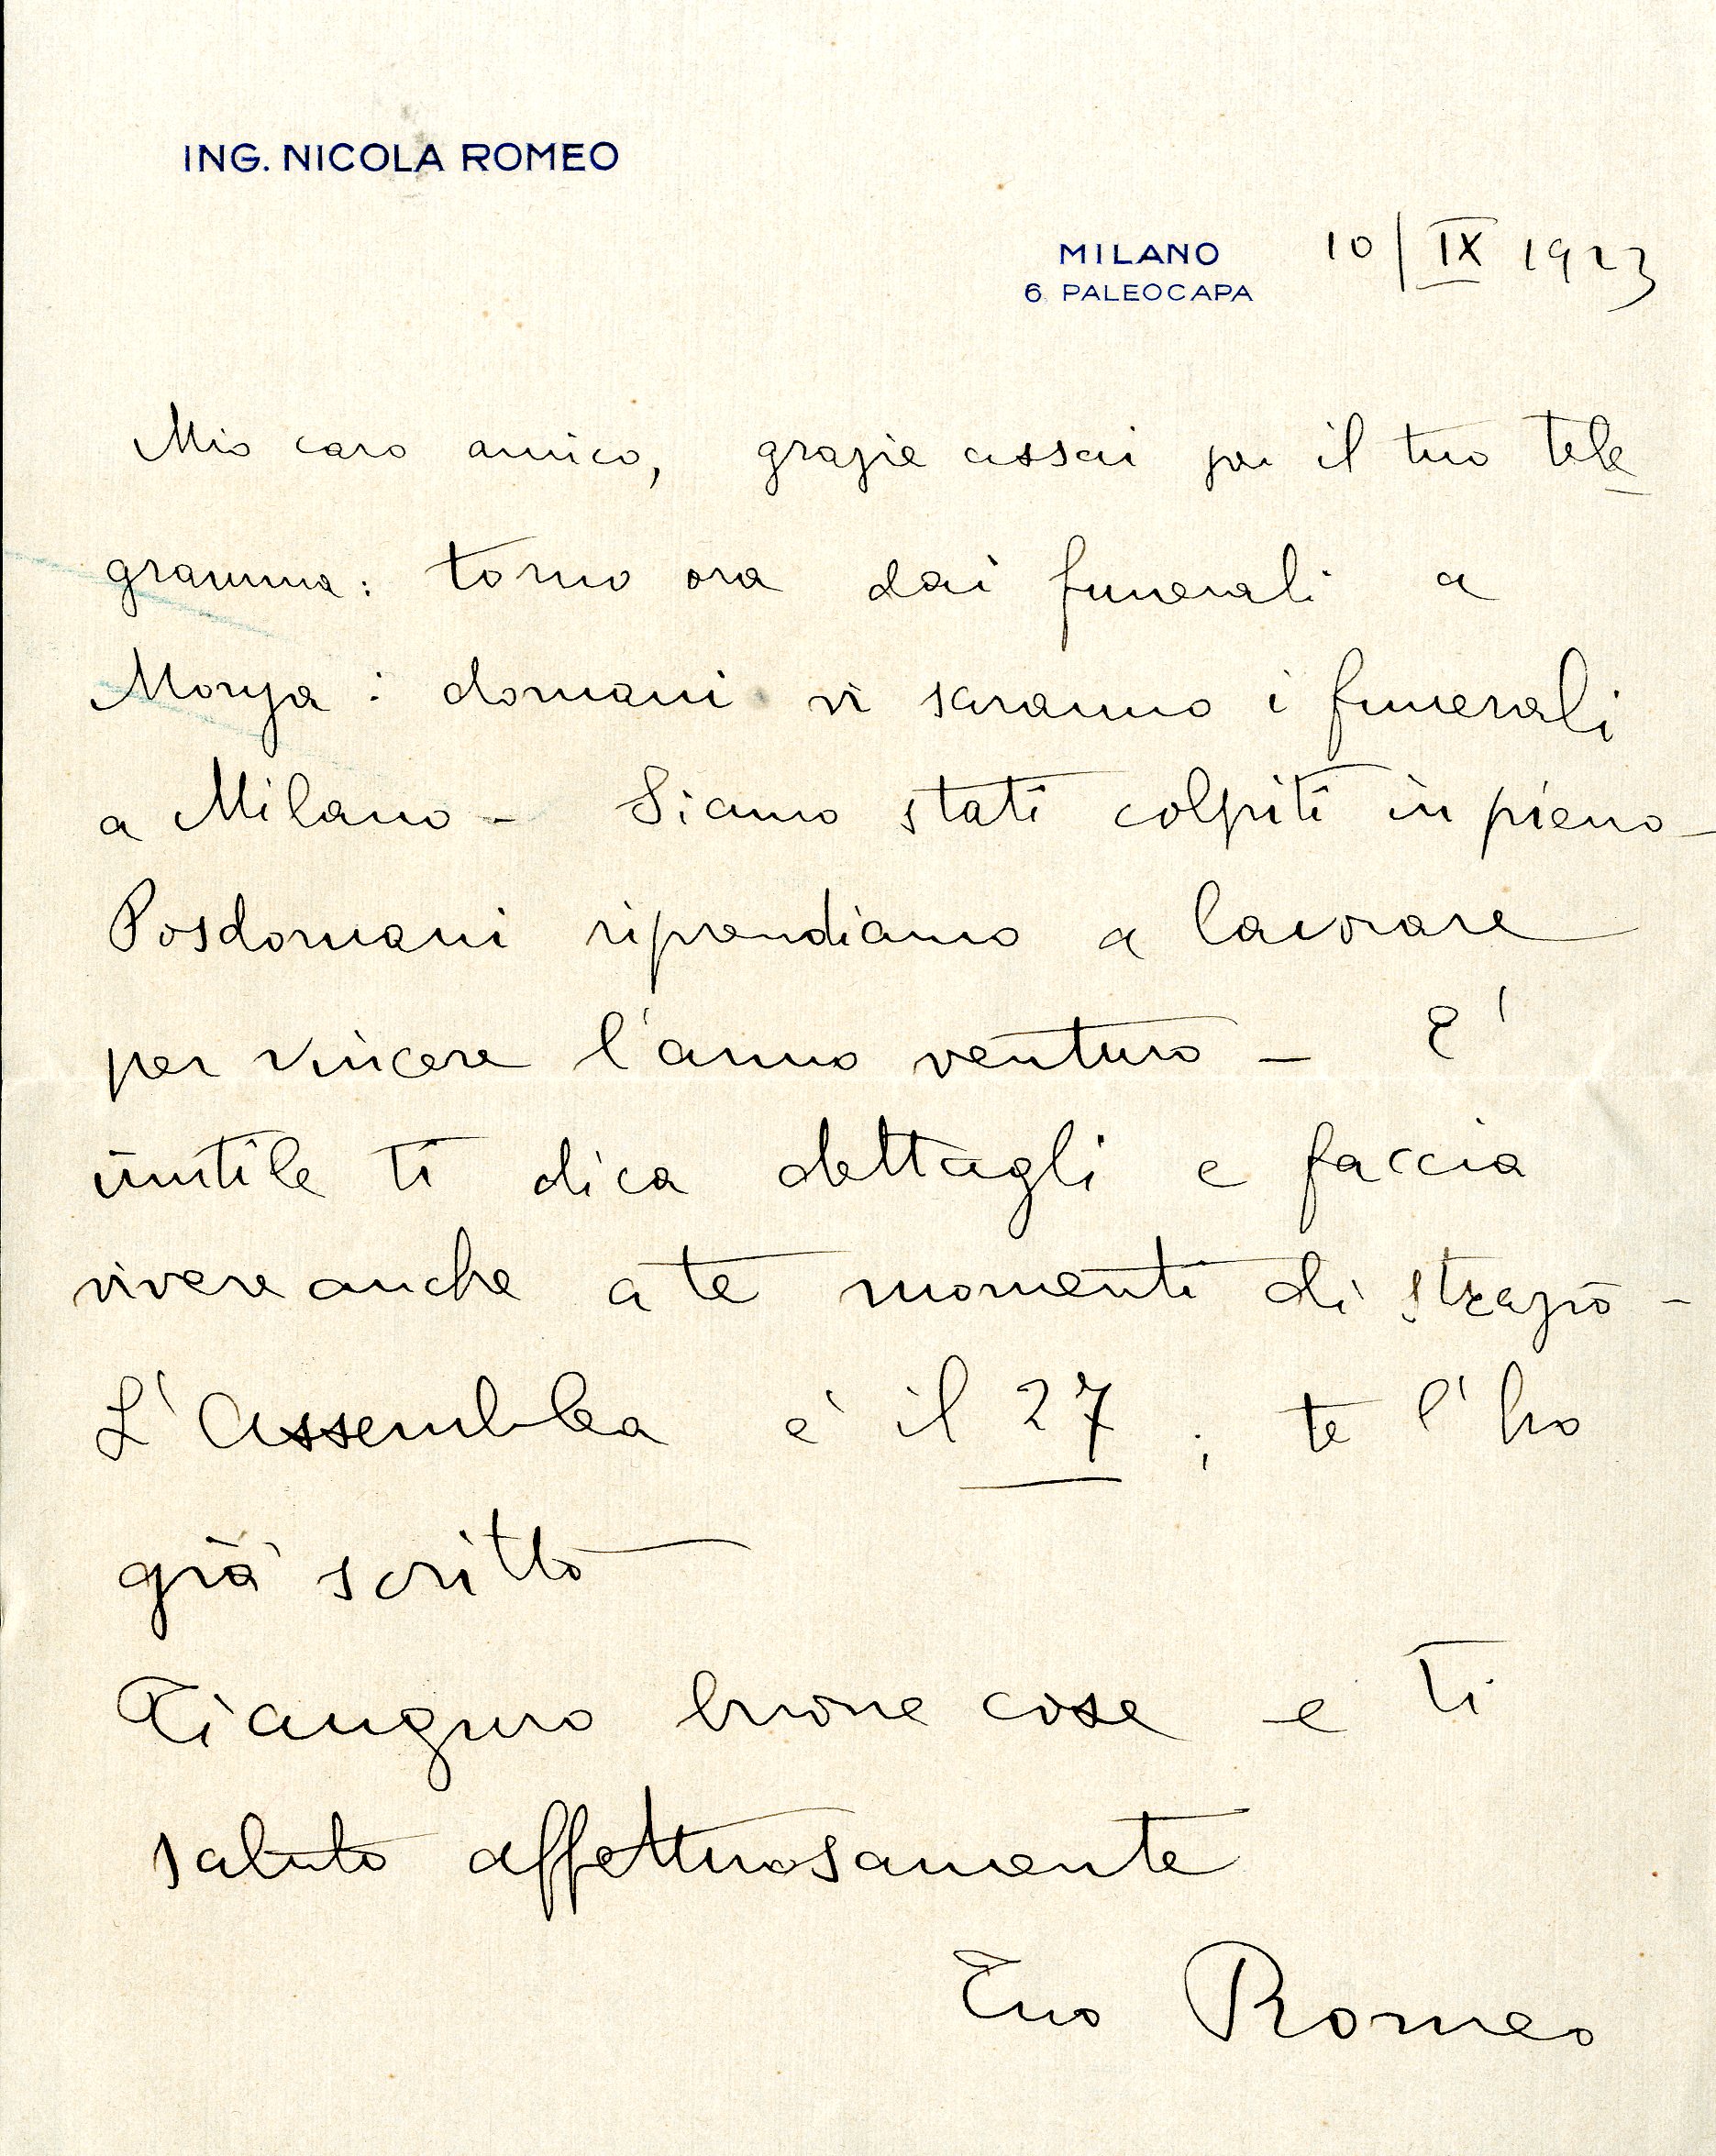 ING. NICOLA ROMEO
MILANO 10/IX 1923
6. PALEOCAPA
Mio caro amico, grazie assai per il tuo tele
gramma: torno ora dai funerali a
Monza: domani vi saranno i funerali
a Milano - Siamo stati colpiti in pieno -
Posdomani riprendiamo a lavorare
per vincere l'anno venturo - E'
inutile ti dica dettagli e faccia
vivere anche a te momenti di strazio -
L'Assemblea è il 27; te l'ho
già scritto
Ti auguro buone cose e ti
saluto affettuosamente
Tuo Romeo